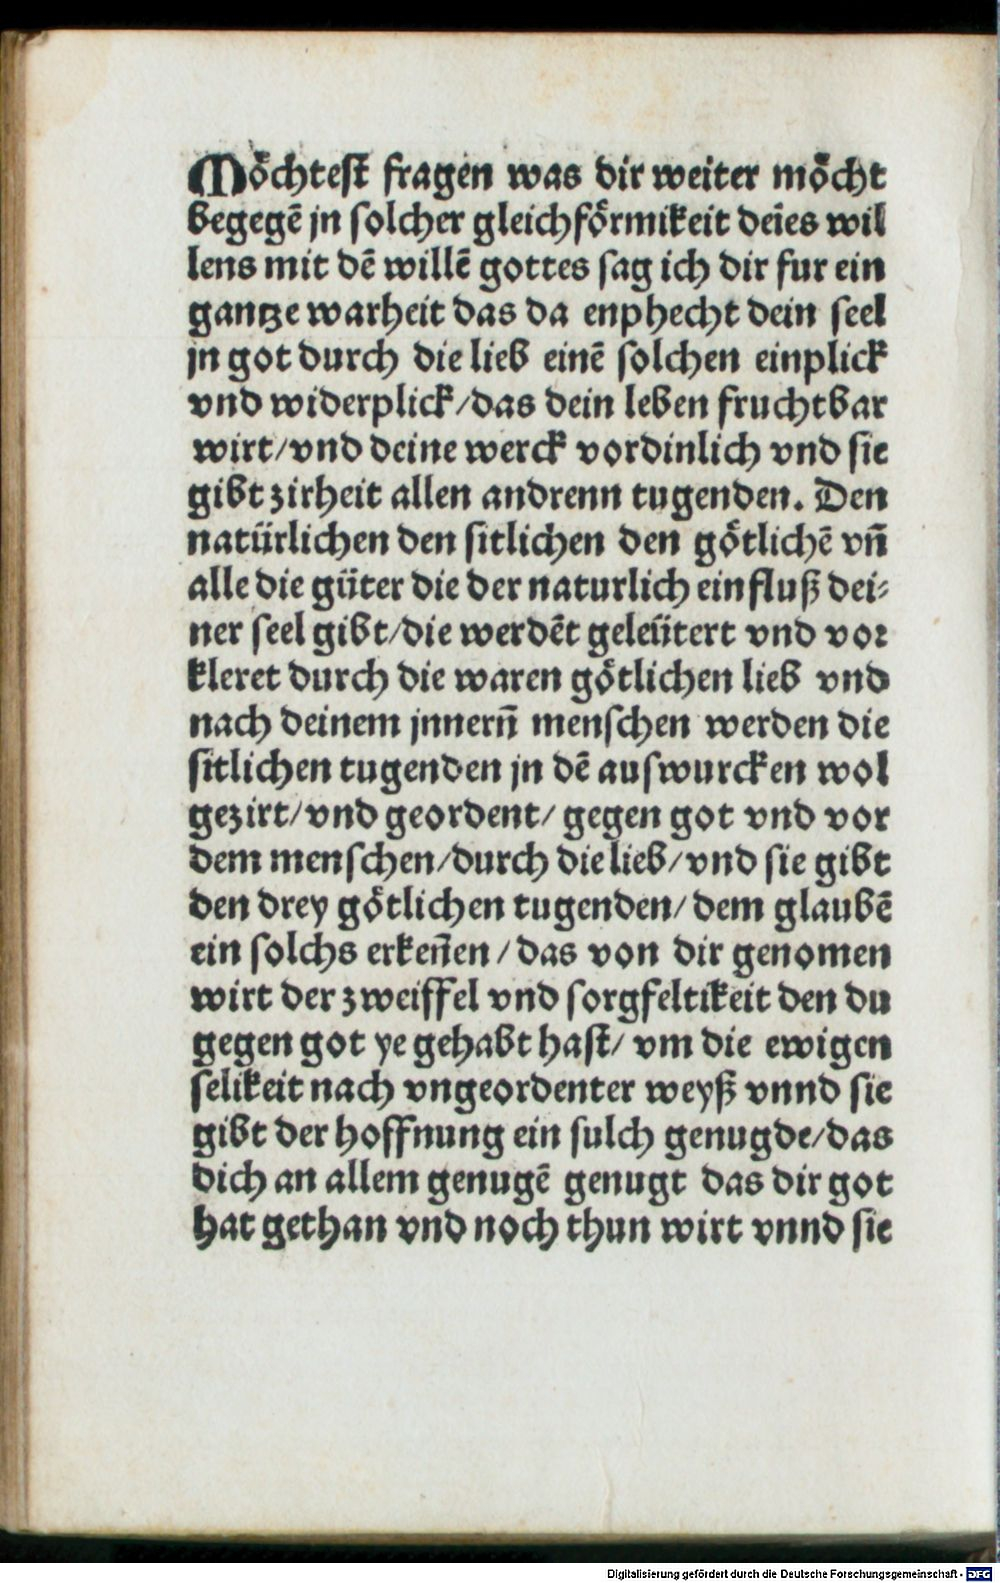 Möchtest fragen was dir weiter möcht
begegē jn solcher gleichförmikeit deīes wil
lens mit dē willē gottes sag ich dir fur ein
gantze warheit das da enphecht dein seel
jn got durch die lieb einē solchen einplick
vnd widerplick/das dein leben fruchtbar
wirt/vnd deine werck vordinlich vnd sie
gibt zirheit allen andrenn tugenden. Den
natürlichen den sitlichen den götlichē vn̄
alle die güter die der naturlich einfluß dei⸗
ner seel gibt/die werdēt geleütert vnd vor
kleret durch die waren götlichen lieb vnd
nach deinem jnnern̄ menschen werden die
sitlichen tugenden jn dē auswurcken wol
gezirt/vnd geordent/ gegen got vnd vor
dem menschen/durch die lieb/vnd sie gibt
den drey götlichen tugenden/dem glaubē
ein solchs erken̄en/das von dir genomen
wirt der zweiffel vnd sorgfeltikeit den du
gegen got ye gehabt hast/ vm die ewigen
selikeit nach vngeordenter weyß vnnd sie
gibt der hoffnung ein sulch genugde/das
dich an allem genugē genugt das dir got
hat gethan vnd noch thun wirt vnnd sie
Digitalisierung gefördert durch die Deutsche Forschungsgemeinschaft - DFG